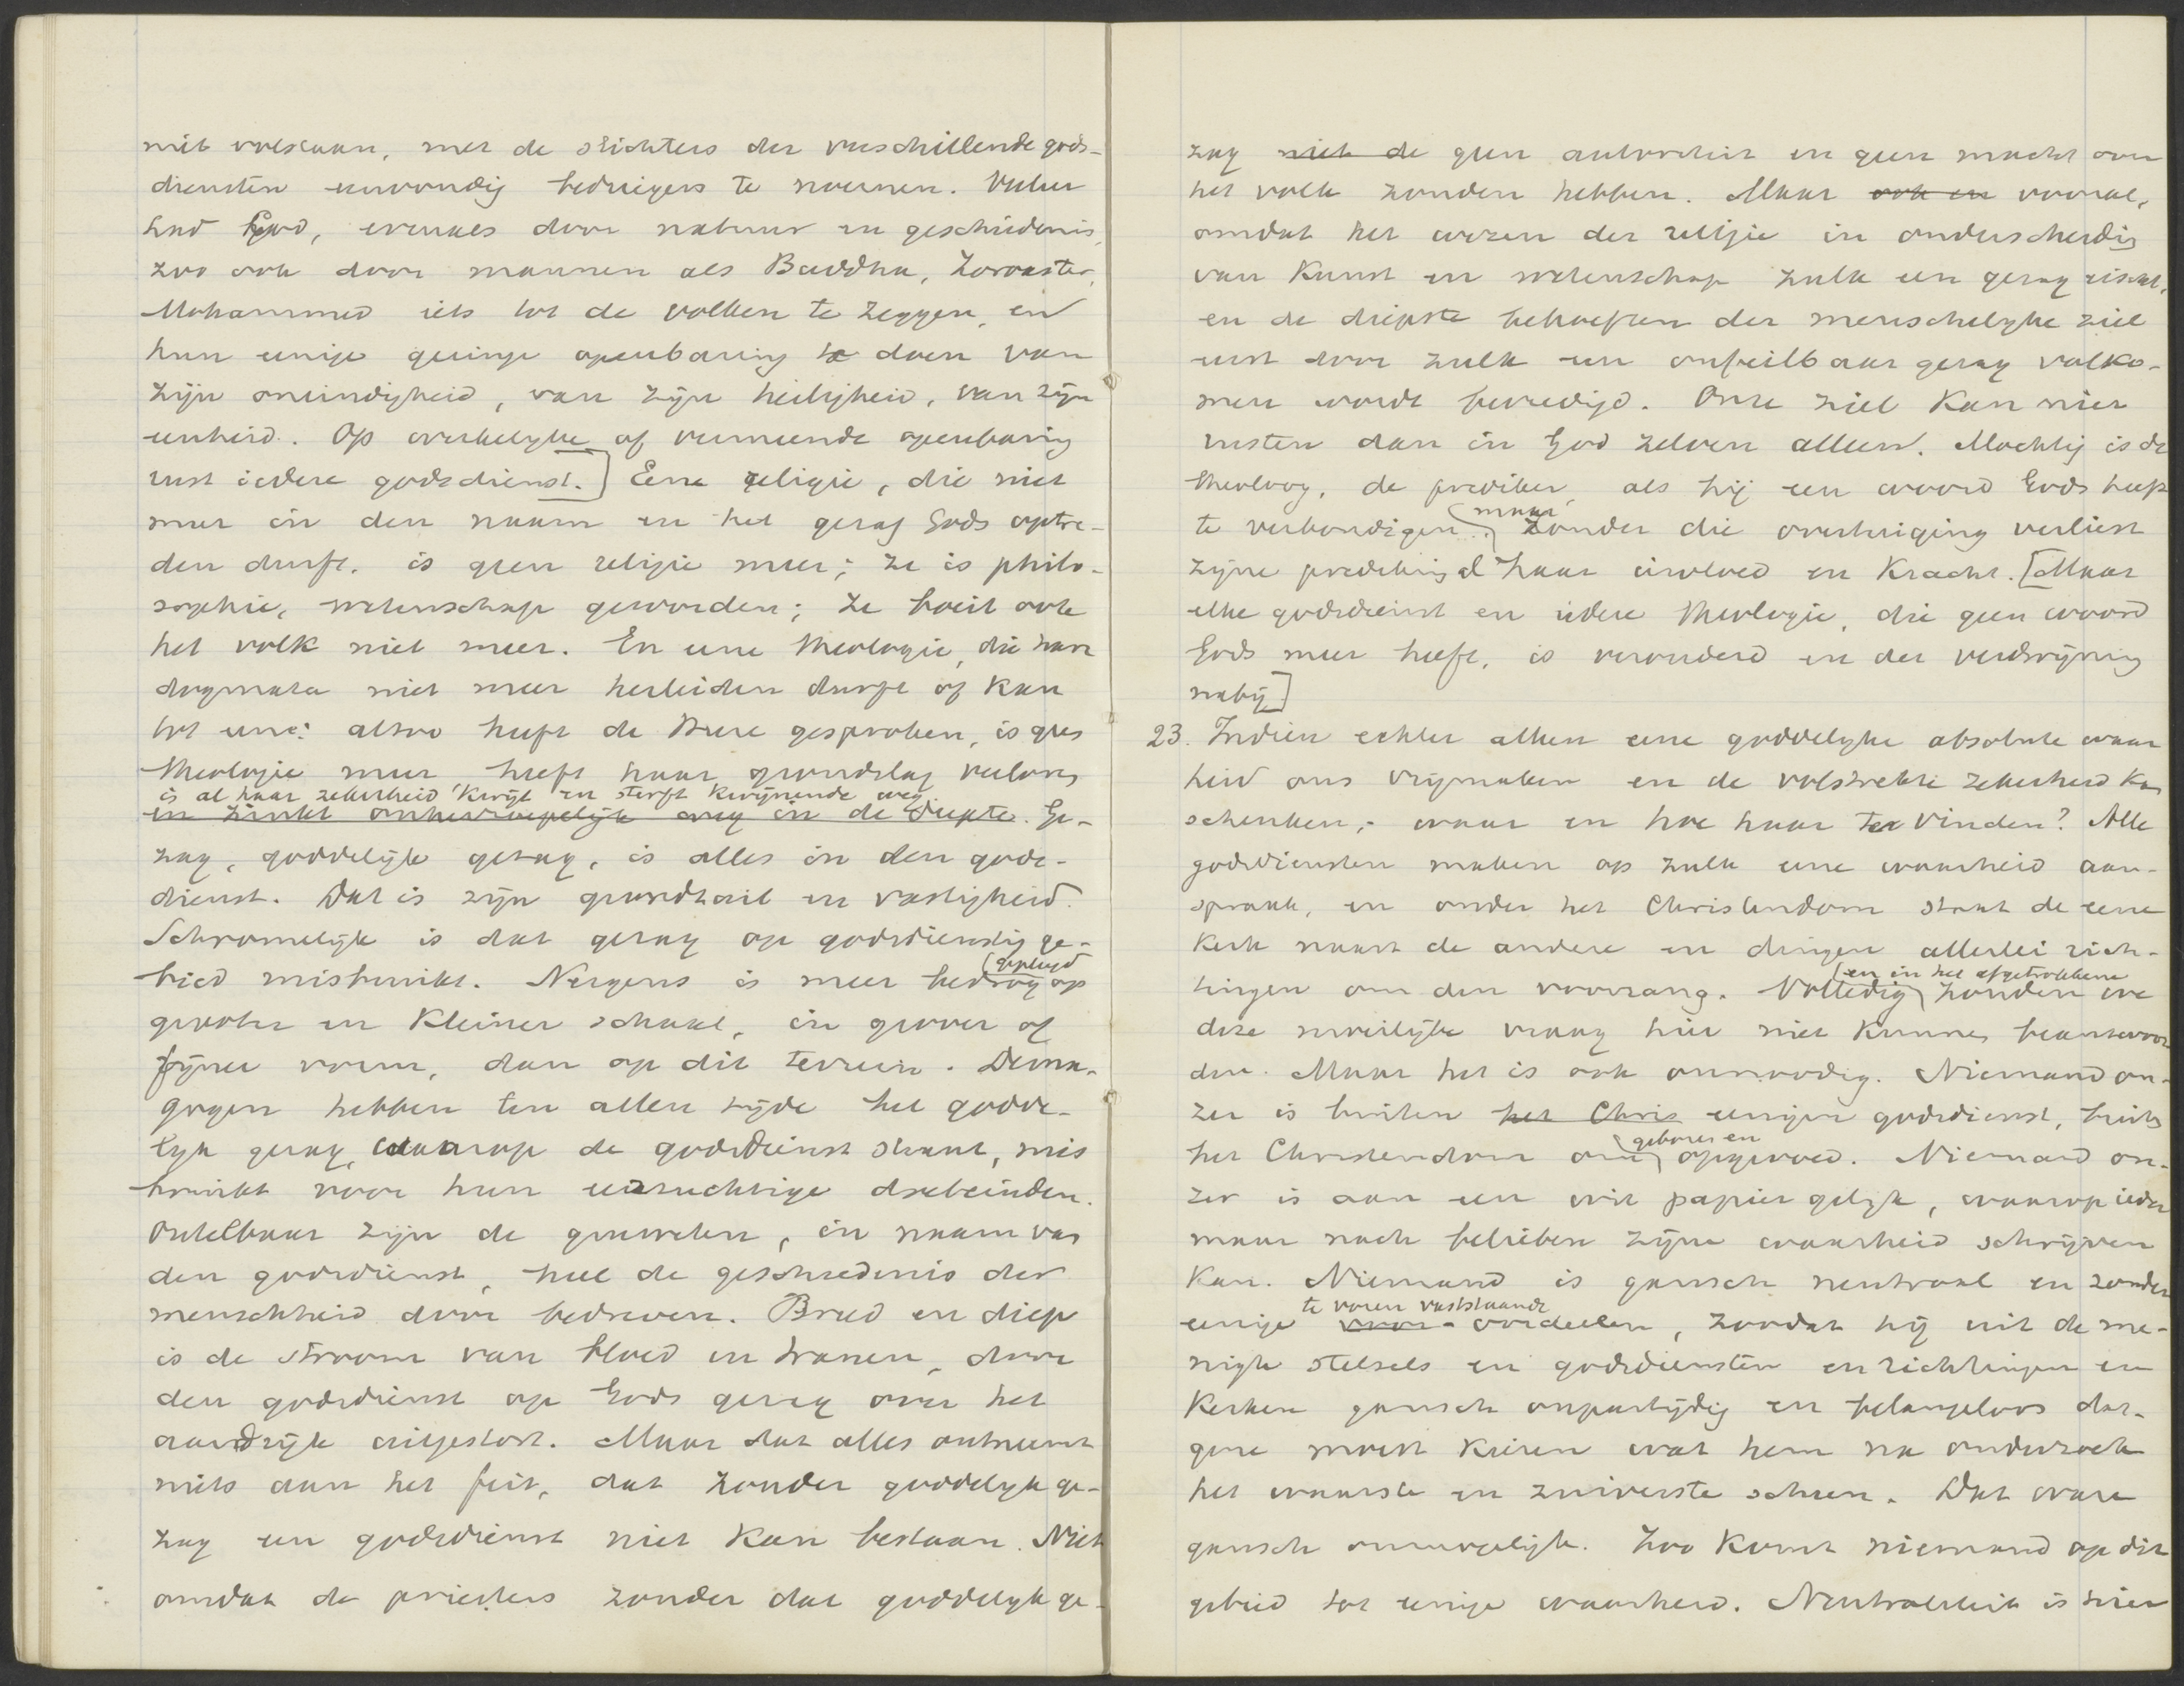 niet volstaan, met de stichters der verschillende gods-
diensten eenvoudig bedriegers te noemen. Veeleer
had God, evenals door natuur en geschiedenis,
zoo ook door mannen als Buddha, Zoroaster,
Mohammed iets tot de volken te zeggen, en
hun eenige geringe openbaring te doen van
zijn oneindigheid, van zijn heiligheid, van zijn
eenheid. Op werkelyke of vermeende openbaring
rust iedere godsdienst.] Eene religie, die niet
meer in den naam en het gezag Gods optre-
den durft, is geen religie meer; ze is philo-
sophie, wetenschap geworden; ze boeit ook
het volk niet meer. En eene theologie, die haar
dogmata niet meer herleiden durft of kan
tot eene: alzoo heeft de Heere gesproken, is geen
theologie meer, heeft haar grondslag verloren
is al haar zekerheid kwijt en sterft kwijnende weg
en zinkt onherroepelijk weg in de diepte. Ge-
zag, goddelijk gezag, is alles in den gods-
dienst. Dat is zijn grondzuil en vastigheid.
Schromelijk is dat gezag op godsdienstig ge-
bied misbruikt. Nergens is meer bedrog gepleegd op
grooter en kleiner schaal, in grover of
fijner vorm, dan op dit terrein. Dema-
gogen hebben ten allen tijde het godde-
lyk gezag, waarop de godsdienst staat, mis
bruikt voor hun eerzuchtige doeleinden.
Ontelbaar zijn de gruwelen, in naam van
den godsdienst, heel de geschiedenis der
menschheid door bedreven. Breed en diep
is de stroom van bloed en tranen, door
den godsdienst op Gods gezag over het
aardrijk uitgestort. Maar dat alles ontneemt
niets aan het feit, dat zonder goddelyk ge-
zag een godsdienst niet kan bestaan. Niet
omdat de priesters zonder dat goddelyk ge-
zag niet de geen autoriteit en geen macht over
het volk zouden hebben. Maar ook en vooral,
omdat het wezen der religie in onderscheidig
van kunst en wetenschap zulk een gezag eischt,
en de diepste behoeften der menschelyke ziel
eerst door zulk een onfeilbaar gezag volko-
men wordt bevredigd. Onze ziel kan niet
rusten dan in God zelven alleen. Machtig is de
theoloog, de prediker, als hij een woord Gods heeft
te verkondigen. maar zonder die overtuiging verliest
zijne prediking al haar invloed en kracht. [Maar
elke godsdienst en iedere theologie, die geen woord
Gods meer heeft, is verouderd en der verdwijning
nabij]
23. Indien echter alleen eene goddelyke absolute waar
heid ons vrijmaken en de volstrekte zekerheid kan
schenken,- waar en hoe haar te vinden? Alle
godsdiensten maken op zulk eene waarheid aan-
spraak, en onder het Christendom staat de eene
kerk naast de andere en dingen allerlei rich-
tingen om den voorrang. Volledig en in het afgetrokkene zouden we
deze moeilijke vraag hier niet kunnen beantwoor
den. Maar het is ook onnoodig. Niemand on-
zer is buiten het Chris eenigen godsdienst, buiten
het Christendom om geboren en opgevoed. Niemand on-
zer is aan een wit papier gelijk, waarop ieder
maar naar believen zijne waarheid schrijven
kan. Niemand is gansch neutraal en zonder
eenige voor- te voren vaststaande oordeelen, zoodat hij uit de me-
nigte stelsels en godsdiensten en richtingen en
kerken gansch onpartijdig en belangeloos dat-
gene moest kiezen wat hem na onderzoek
het waarste en zuiverste scheen. Dat ware
gansch onmogelijk. Zoo komt niemand op dit
gebied tot eenige waarheid. Neutraliteit is hier